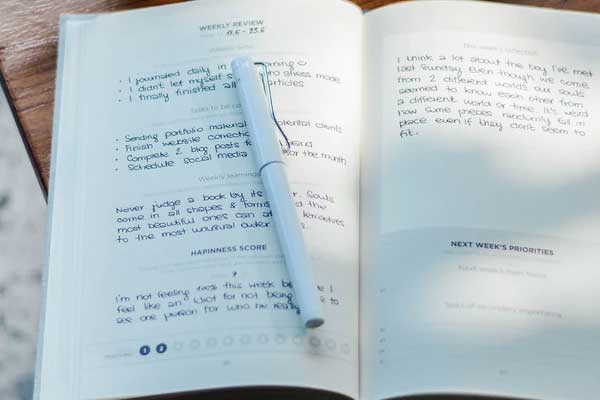 WEEKLY REVIEW
17.6 - 23.6
Weekly wins
• I journaled daily in
• I didn't let myself stress mode
• I finally finished all articles
Tasks to be
• Sending portfolio material clients
• Finish website
• Complete 2 blog posts
• Schedule social media for the month
Weekly learnings
Never judge a book by its Souls
come in all shapes & forms the
most beautiful ones can
to the most unusual outer
HAPINNESS SCORE
?
I'm not feeling this week I
feel like an idiot for not being to
see one person for who he
1 2
This week's reflection
I think a lot about the boy I've met
last Sunday. Even though we come
from 2 different worlds our souls
seemed to know each other from
a different world or time. It's weird
how some pieces randomly fall in
place even if they don't seem to
fit.
NEXT WEEK'S PRIORITIES
Next week's main focus
Tasks of secondary importance